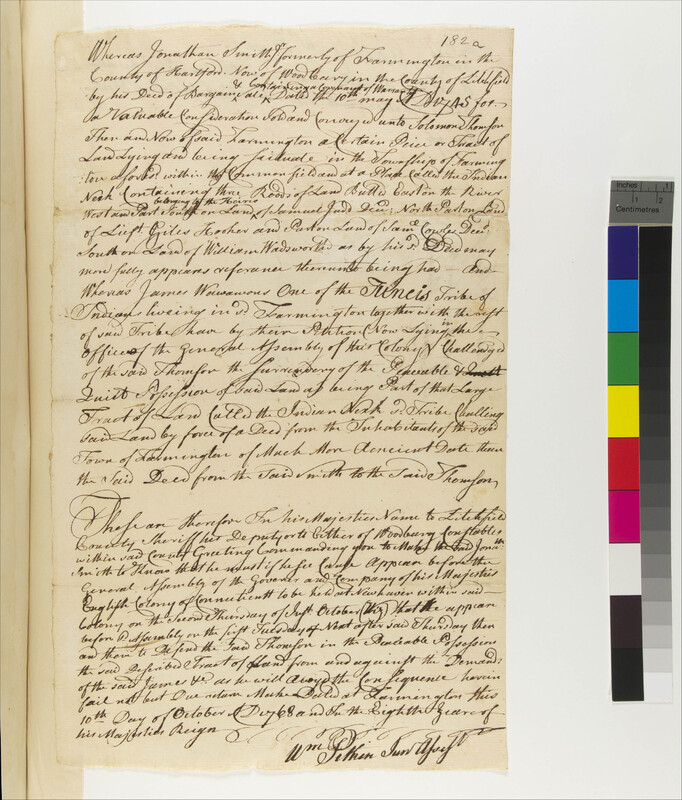 182a
Whereas Jonathan Smith formerly of Farmington in the
County of Hartford Now of Woodbury in the County of Litchfield
& Containing a Covenant of Warranty
by his Deed of Bargain Sale Dated the 10th may AD 1745 for
a Valuable Consideration Sold and Conveyed unto Solomon Thomson
Then and Now of said Farmington a Certain Peice or Tract of
Land Lying and being Scituate in the Township of Farming
ton afores.d within the Common field and at a Place Called the Indian
Neck Containing three Roods of Land Butted East on the River
belonging to the Heirs
West and Part South on Land of Samuel Judd Decd North Part on Land
of Lieft Giles Hooker and Part on Land of Sam.ll Cowles Decd
South on Land of William Wadsworth as by his s.d Deed may
more fully appear referance thereunto being had — And
Whereas James Wawawous One of the Tuncis Tribe of
Indians liveing in s.d Farmington together with the rest
of said Tribe have by their Petition Now Lying in the
office of the General Assembly of this Colony Challendged
of the said Thomson the Surrendery of the Peaceable &
Quiet Possession of said Land as being Part of that Large
Tract of Land Called the Indian Neck s.d Tribe Challeng
said Land by force of a Deed from the Inhabitants of the said
Town of Farmington of Much More Ancient Date then
the Said Deed from the Said Smith to the Said Thomson
These are therefore In his Majesties Name to Litchfield
County Sheriff his Deputy or to Either of Woodbury Constables
within said County Greeting Commanding you to Make the Said Jonth
Smith to Know that he must if he see Cause Appear before the
General Assembly of the Govener and Company of his Majesties
English Colony of Connecticutt to be held at Newhaven within said
Colony on the Second Thursday of Inst October (viz) That he appear
before s.d Assembly on the first Tuesday Next after said Thursday then
and there to Defend the Said Thomson in the Peaceable Possession
the said Described Tract of Land from and against the Demand
of the said James &c as he will avoyd the Consequence hereun
fail not but Due return Make Dated at Farmington this
10th Day of October AD 1768 and In the Eighth Yeare of
his Majesties Reign
Wm Pitkin Junr Assist
Inches
1
2
Centimetres